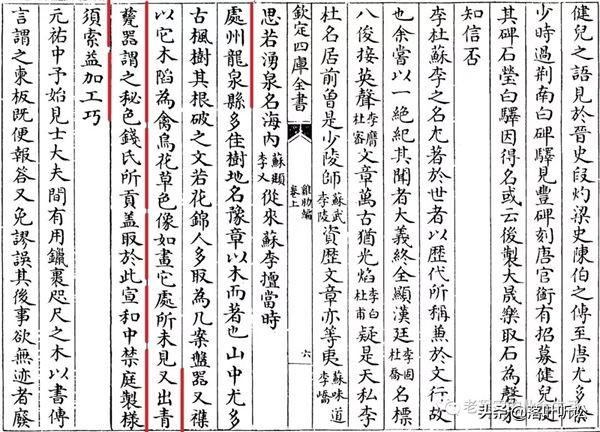 健兒之語見於晉史段灼梁史陳伯之傳至唐尤多余
少時過荆南白碑驛見豐碑刻唐官銜有招募健兒使
其碑石瑩白驛因得名或云後製大晟樂取石為
知信否
李杜蘇李之名尤著於世者以歷代所稱兼於文行故
也余嘗以一絶紀其聞者大義終全顯漢廷李固杜喬名標
八俊接英聲李膺杜密文章萬古猶光焰李白杜甫疑是天私李
杜名居前曾是少陵師蘇武李陵資歷文章亦等夷蘇味道李嶠
欽定四庫全書
雞肋編
卷上
六
思若湧泉名海内蘇頲李乂從來蘇李擅當時
處州龍泉縣多佳樹地名豫章以木而著也山中尤多
古楓樹其根破之文若花錦人多取為几案盤器又雜
以它木陷為禽鳥花草色像如畫它處所未見又出青
甆器謂之秘色錢氏所貢盖取於此宣和中禁庭製樣
須索益加工巧
元祐中予始見士大夫間有用鑞裹咫尺之木以書傳
言謂之柬板既便報答又免謬誤其後事欲無迹者廢
头条@落叶听松